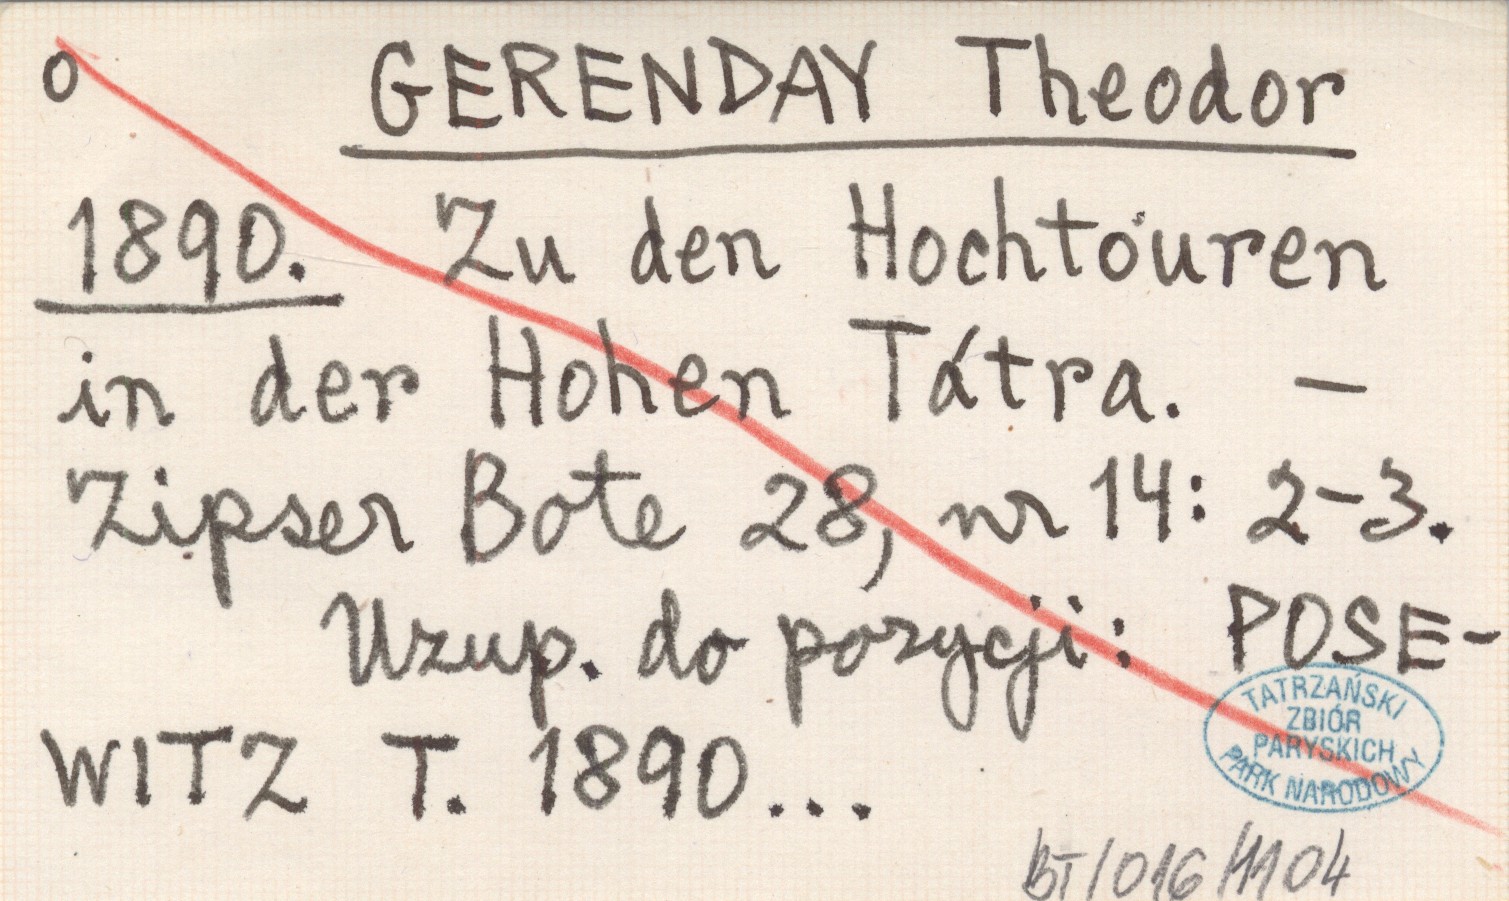 o GERENDAY Theodor
1890. Zu den Hochtouren
in der Hohen Tátra. –
Zipser Bote 28, nr 14: 2–3.
Uzup. do pozycji: POSE-
WITZ T. 1890...
TATRZAŃSKI
ZBIÓR
PARYSKICH
PARK NARODOWY
BT/016/1104